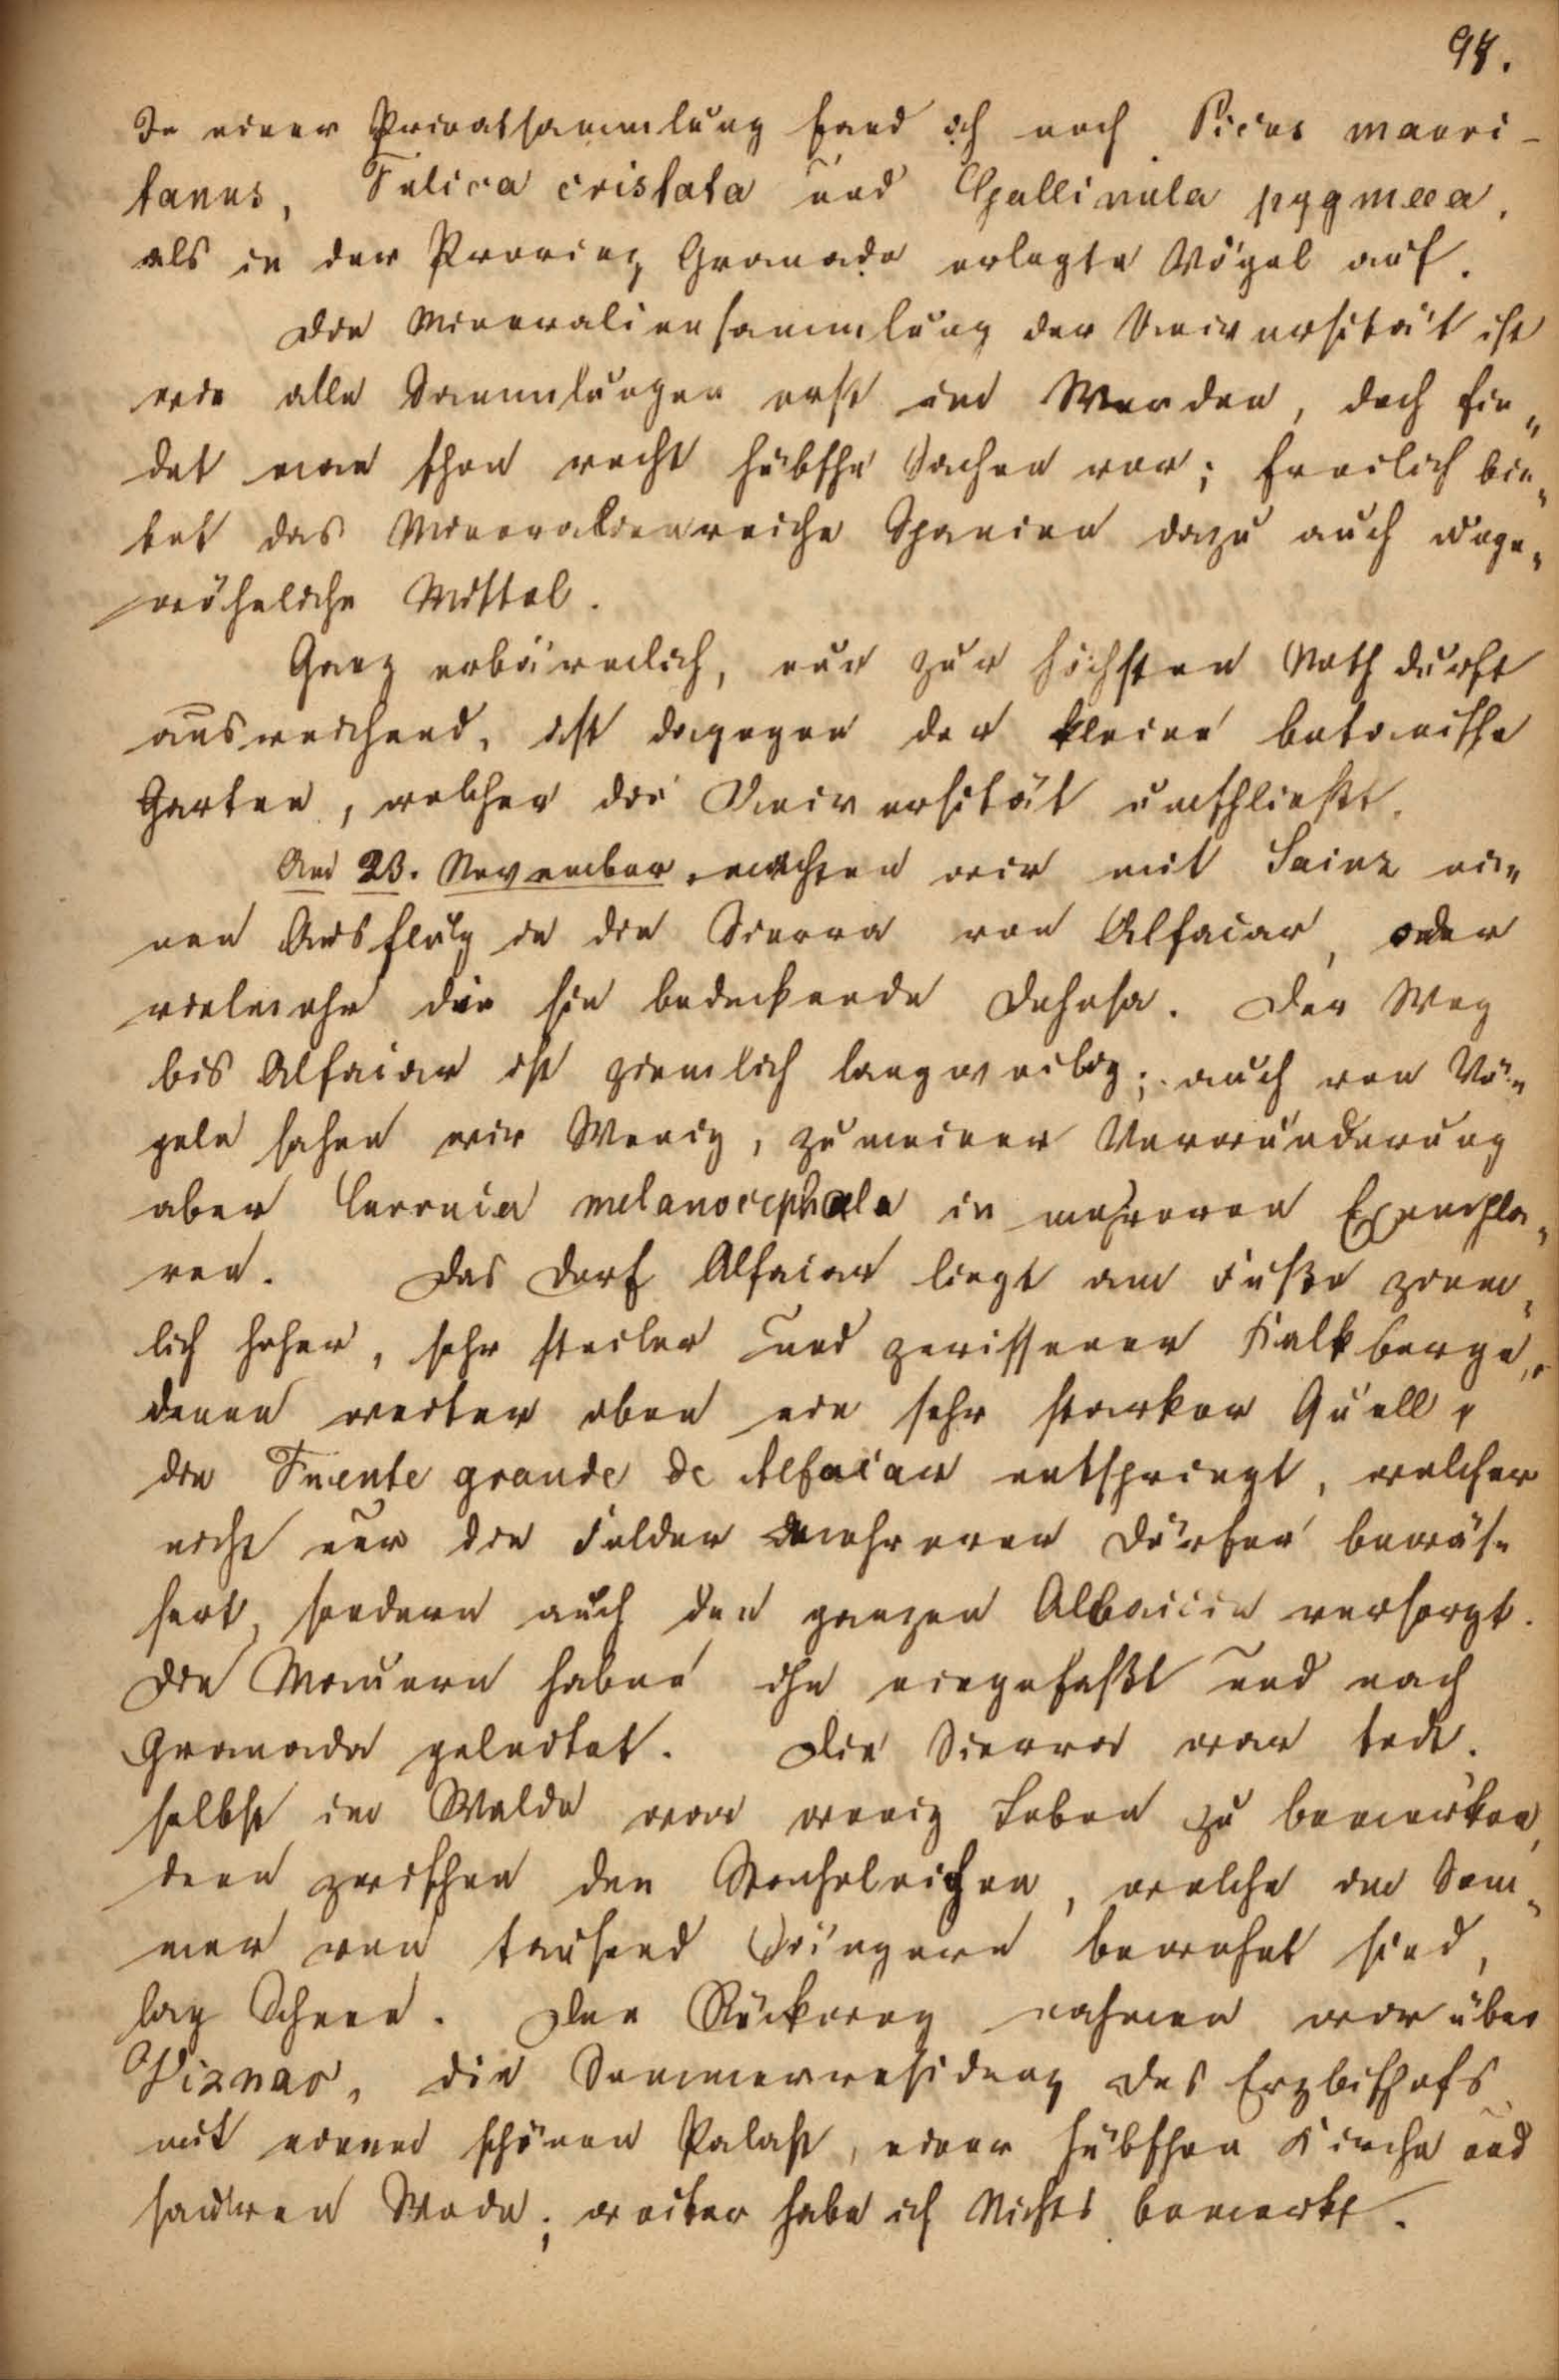 98.
In einer Privatsammlung fand ich noch Picus mauri-
tanus, Fulica cristata und Gallinula pygmaea,
als in der Provinz Granada erlegte Vögel auf.
Die Mineraliensammlung der Universität ist
wie alle Sammlungen erst im Werden, doch fin„
det man schon recht hübsche Sachen vor; freilich bie„
tet das Mineralienreiche Spanien dazu auch unge„
wöhnliche Mittel.
Ganz erbärmlich, nur zur höchsten Nothdurft
ausreichend, ist dagegen der kleine botanische
Garten, welcher die Universität umschließt.
Am 23. November machten wir mit Sainz ei„
nen Ausflug in die Sierra von Alfacar, oder
vielmehr die sie bedeckende Dehesa. Der Weg
bis Alfacar ist ziemlich langweilig; auch von Vö„
geln sahen wir Wenig, zu meiner Verwunderung
aber Curruca melanocephala in mehreren Exempla„
ren. Das Dorf Alfacar liegt am Fuße ziem„
lich hoher, sehr steiler und zerissener Kalkberge,
denen weiter oben ein sehr starker Quell,
die Fuente grande de Alfacar entspringt, welcher
nicht nur die Felder mehrerer Dörfer bewäs„
sert, sondern auch den ganzen Albaicin versorgt.
Die Mauren haben ihn eingefaßt und nach
Granada geleitet. Die Sierra war todt.
selbst im Walde war wenig Leben zu bemerken,
denn zwischen den Stecheleichen, welche im Som„
mer von tausend Sängern bewohnt sind,
lag Schnee. Den Rückweg nahmen wir über
Viznar, die Sommerresidenz des Erzbischofs
mit einem schönen Palast, einer hübschen Kirche und
; weiter habe ich Nichts bemerkt.